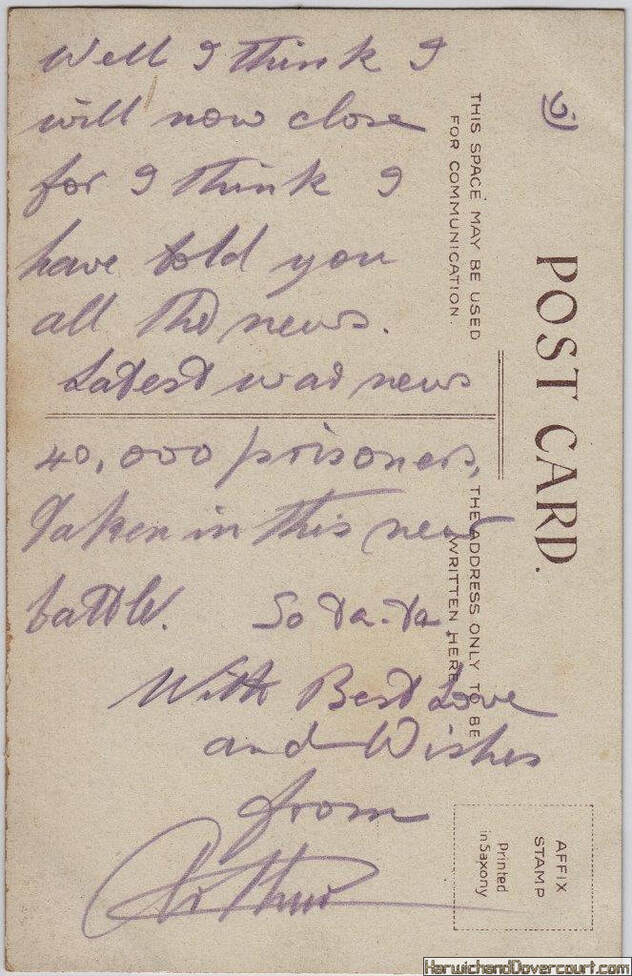 Well I think I
will now close
for I think I
have told you
all the news.
Latest war news
40,000 prisoners,
Taken in this new
battle. So ta-ta.
With Best Love
and Wishes
from
Arthur
POST CARD.
THIS SPACE MAY BE USED
FOR COMMUNICATION.
THE ADDRESS ONLY TO BE
WRITTEN HERE
AFFIX
STAMP
Printed
in Saxony
HarwichandDovercourt.com